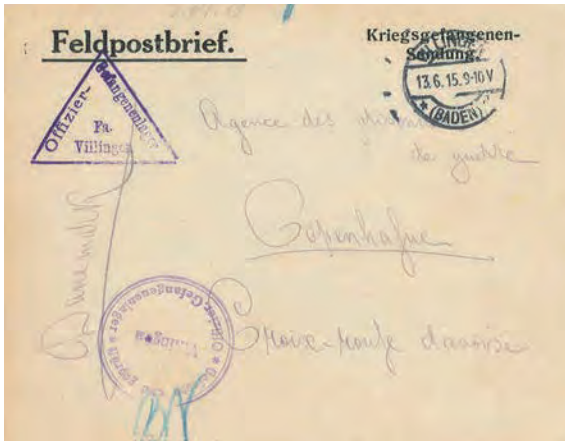 Feldpostbrief.
Kriegsgefangenen-
Sendung.
VILLINGEN
13.6.15.9-10V
(BADEN)
Offizier-Gefangenenlager
Fa.
Villingen
Agence des prisonniers
de guerre
Copenhague
Croix-Rouge danoise
Danemark
Offizier-Gefangenenlager
Villingen